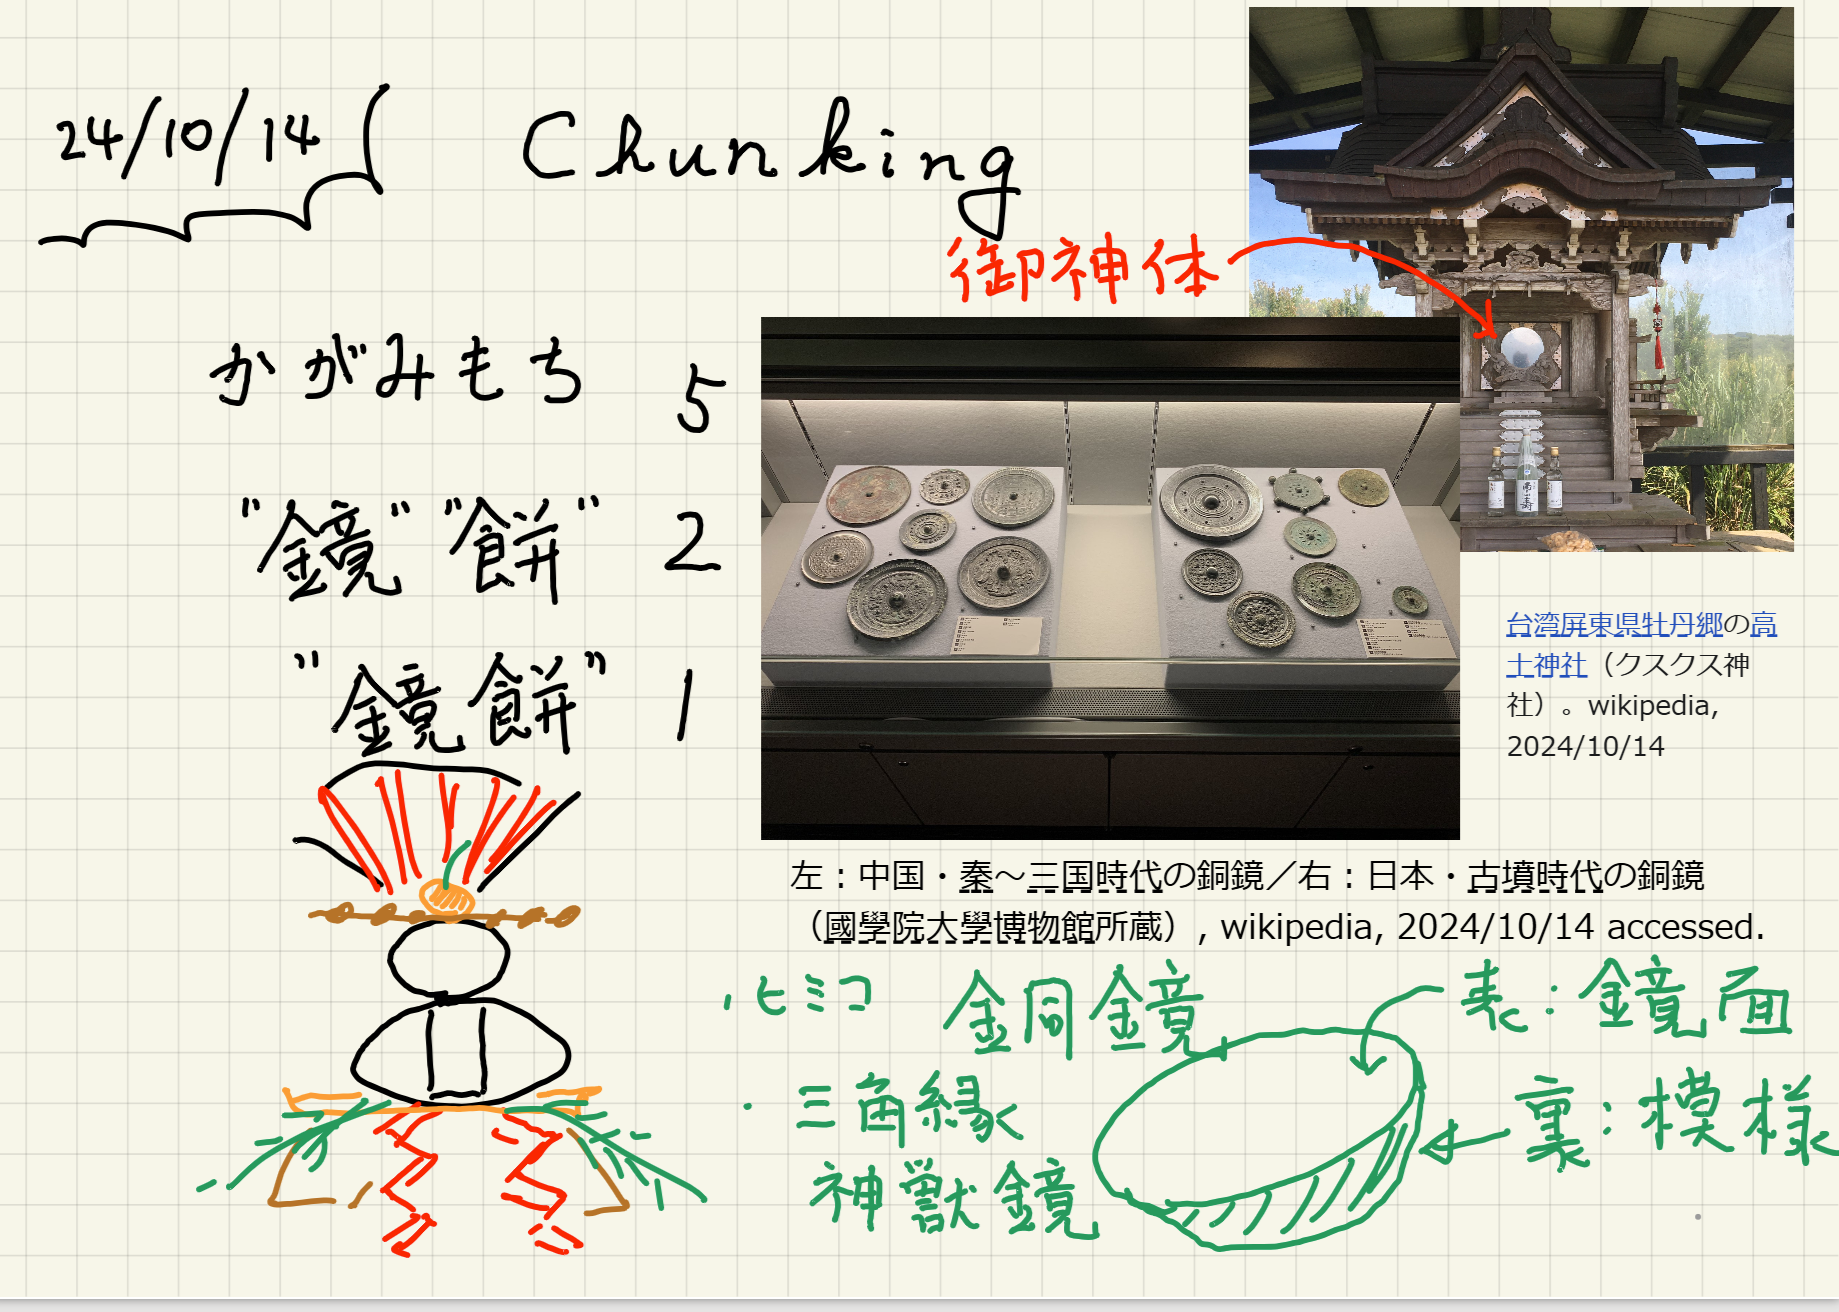 24/10/14
Chunking
御神体
かがみもち 5
"鏡" "餅" 2
"鏡餅" 1
台湾屏東県牡丹郷の高
士神社（クスクス神
社）。wikipedia,
2024/10/14
左：中国・秦～三国時代の銅鏡／右：日本・古墳時代の銅鏡
（國學院大學博物館所蔵）, wikipedia, 2024/10/14 accessed.
・ヒミコ 金同金鏡
・三角縁
神獣鏡
表：鏡面
裏：模様